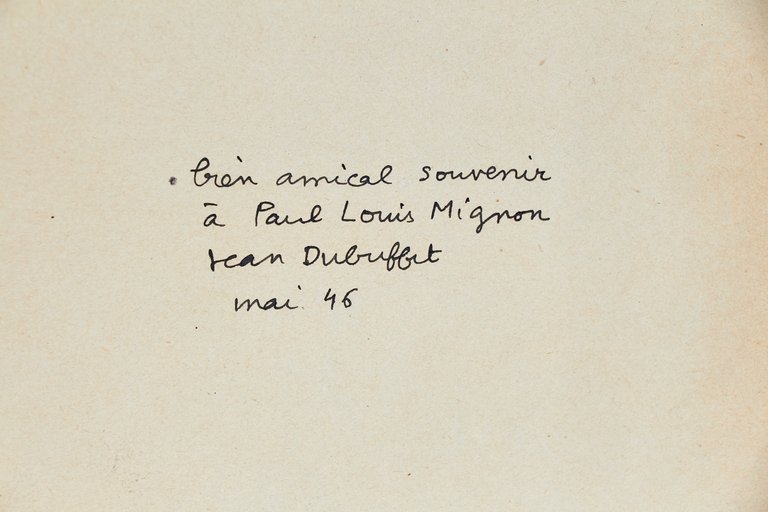 bien amical souvenir
à Paul Louis Mignon
Jean Dubuffet
mai 46